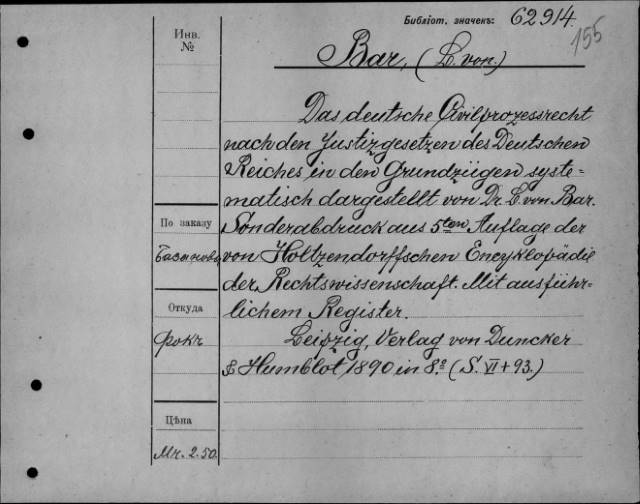 Библіот. значекъ: 62914
155
Инв.
№
Bar, (L. von.)
Das deutsche Civilprozessrecht
nach den Justizgesetzen des Deutschen
Reiches in den Grundzügen syste-
matisch dargestellt von Dr. L. von Bar.
По заказу
Sonderabdruck aus 5ten Auflage der
von Holtzendorffschen Encyklopädie
der Rechtswissenschaft. Mit ausführ-
Откуда
lichem Register.
Фокъ
Leipzig, Verlag von Duncker
& Humblot, 1890 in 8.º (S. VI + 93.)
Цѣна
Mr. 2.50.